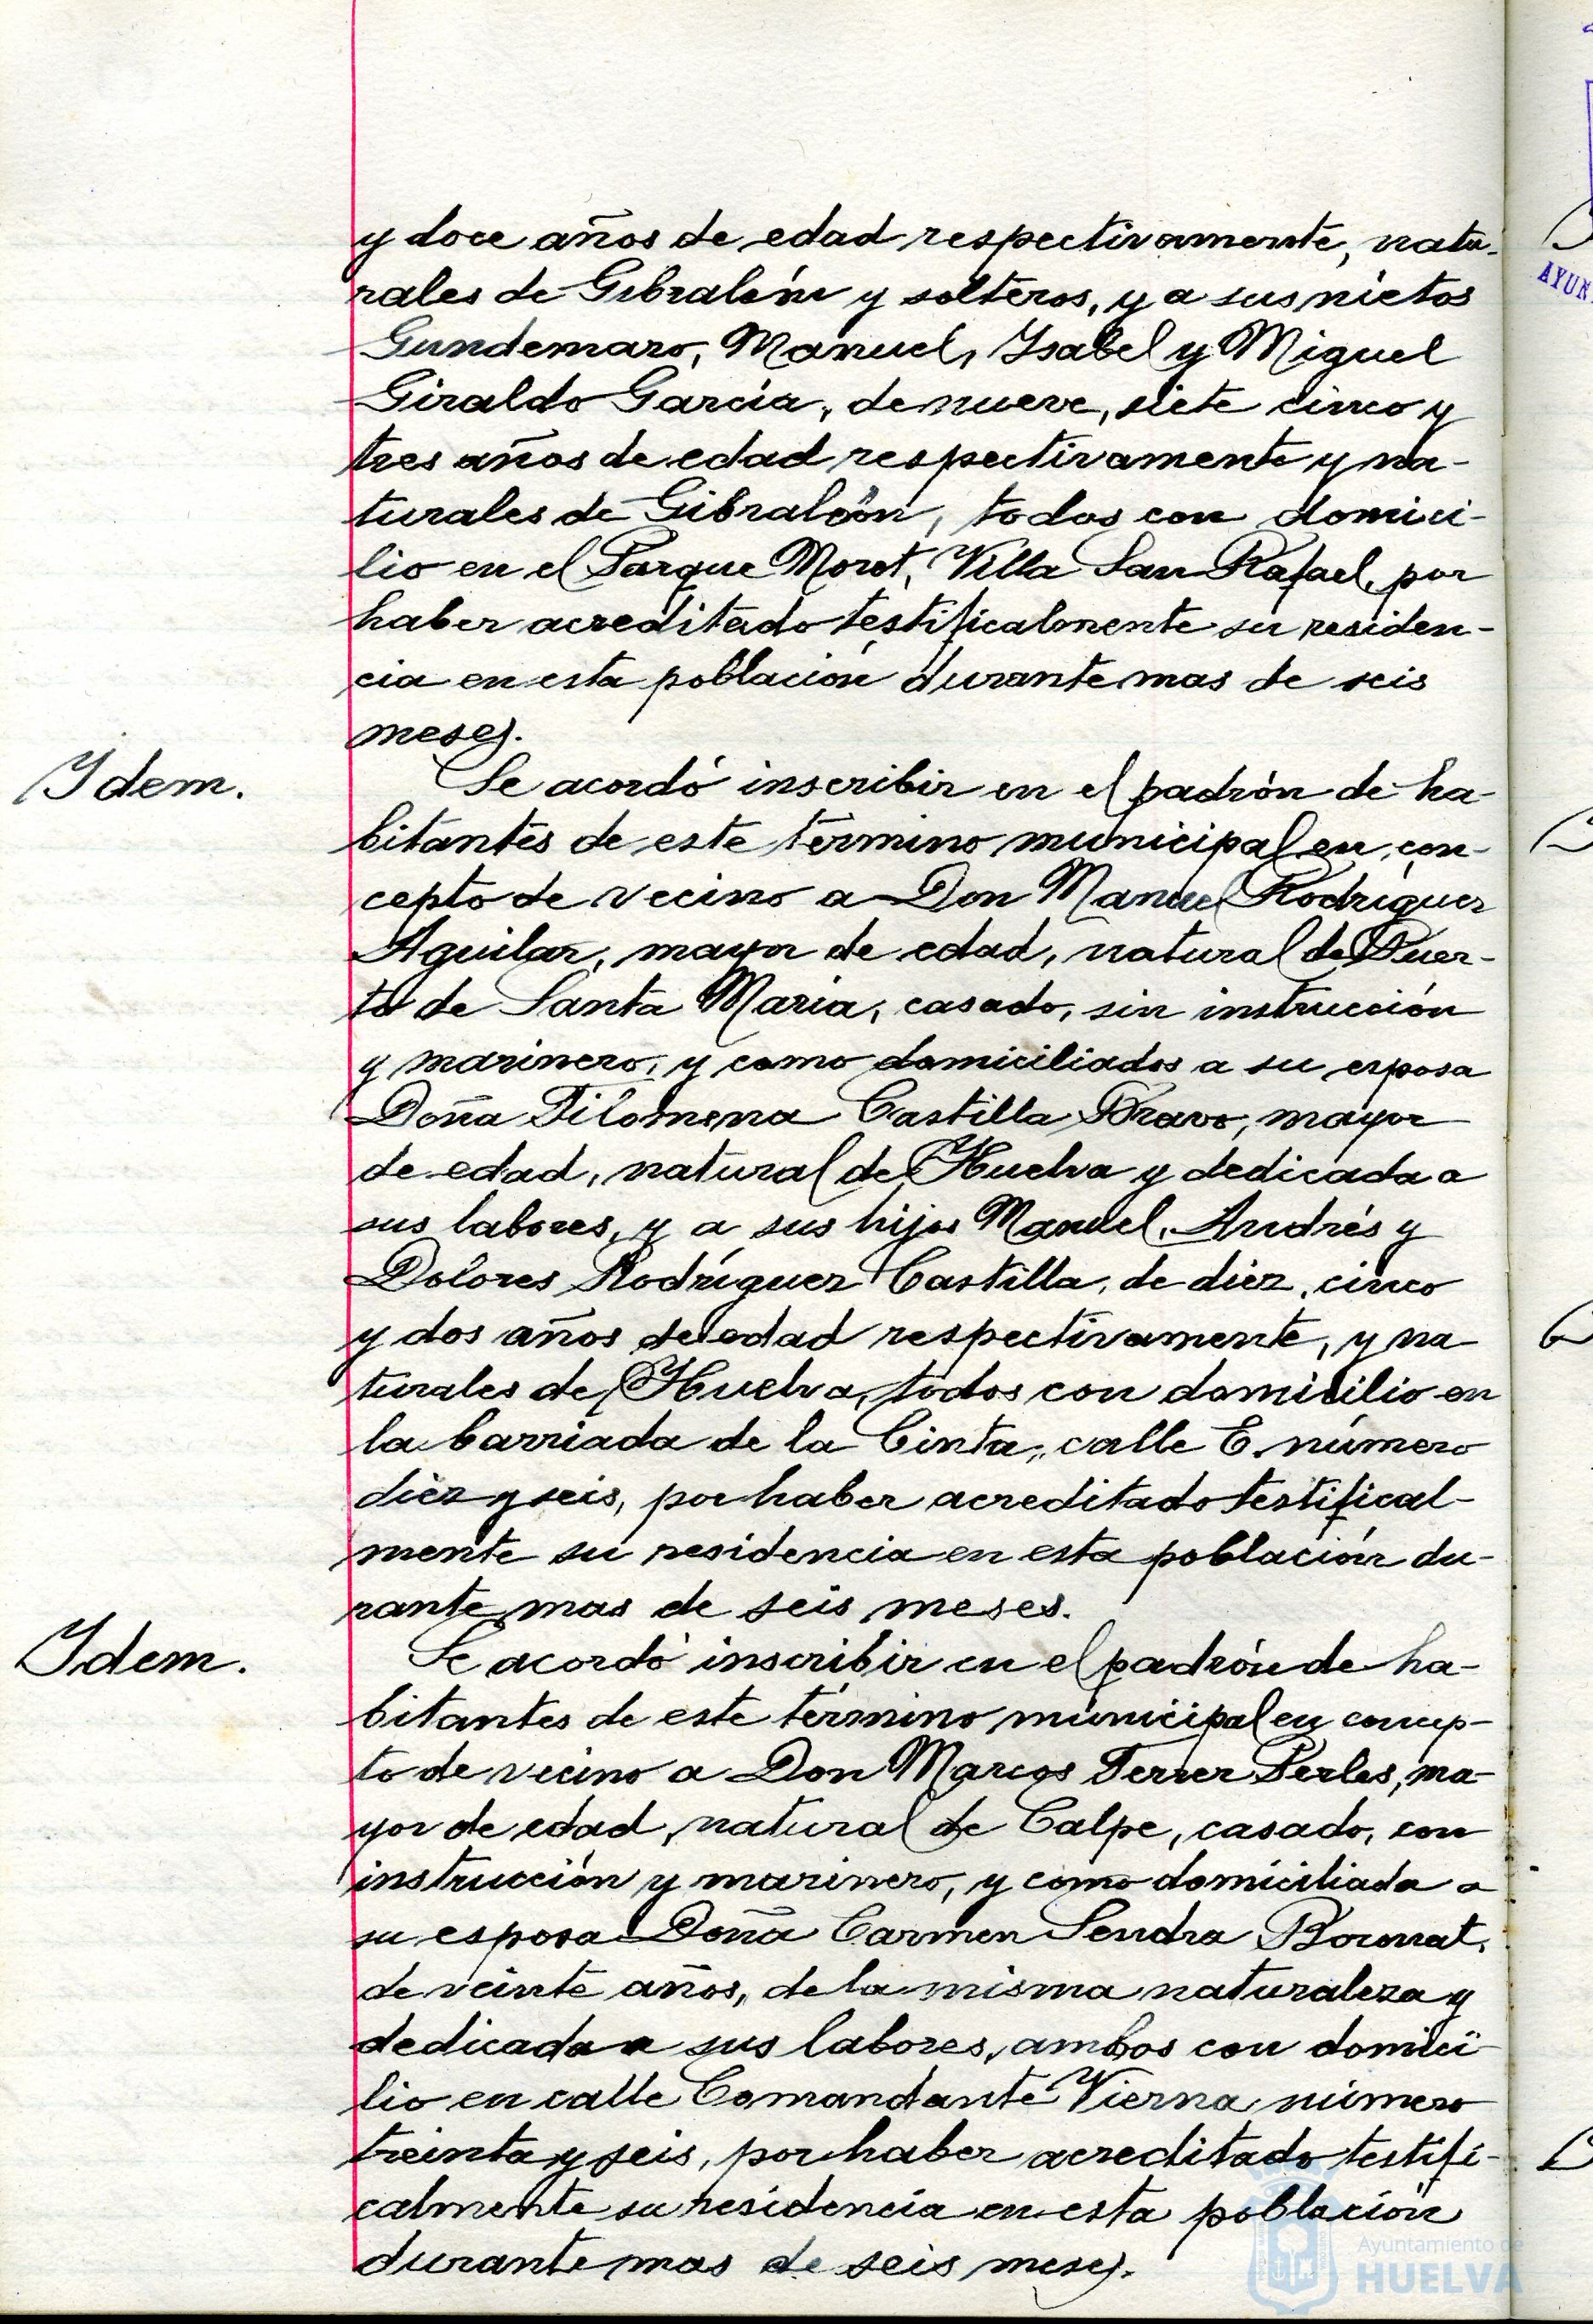 y doce años de edad respectivamente, natu-
rales de Gibraleón y solteros, y a sus nietos
Gundemaro, Manuel, Isabel y Miguel
Giraldo García, de nueve, siete cinco y
tres años de edad respectivamente y na-
turales de Gibraleón, todos con domici-
lio en el Parque Moret, Villa San Rafael, por
haber acreditado testificalmente su residen-
cia en esta población durante mas de seis
meses.
Idem.
Se acordó inscribir en el padrón de ha-
bitantes de este término municipal en con-
cepto de vecino a Don Manuel Rodríguez
Aguilar, mayor de edad, natural de Puer-
to de Santa Maria, casado, sin instrucción
y marinero, y como domiciliados a su esposa
Doña Filomena Castilla Bravo, mayor
de edad, natural de Huelva y dedicada a
sus labores, y a sus hijos Manuel, Andrés y
Dolores Rodríguez Castilla, de diez, cinco
y dos años de edad respectivamente, y na
turales de Huelva, todos con domicilio en
la barriada de la Cinta, calle E. número
diez y seis, por haber acreditado testifical-
mente su residencia en esta población du-
rante mas de seis meses.
Idem.
Se acordó inscribir en el padrón de ha-
bitantes de este término municipal en concep-
to de vecino a Don Marcos Ferrer Perles, ma-
yor de edad, natural de Calpe, casado, con
instrucción y marinero, y como domiciliada a
su esposa Doña Carmen Sendra Boronat,
de veinte años, de la misma naturaleza y
dedicada a sus labores, ambos con domici-
lio en calle Comandante Vierna número
treinta y seis, por haber acreditado testifi-
calmente su residencia en esta población
durante mas de seis meses.
AYUN
Ayuntamiento de
HUELVA